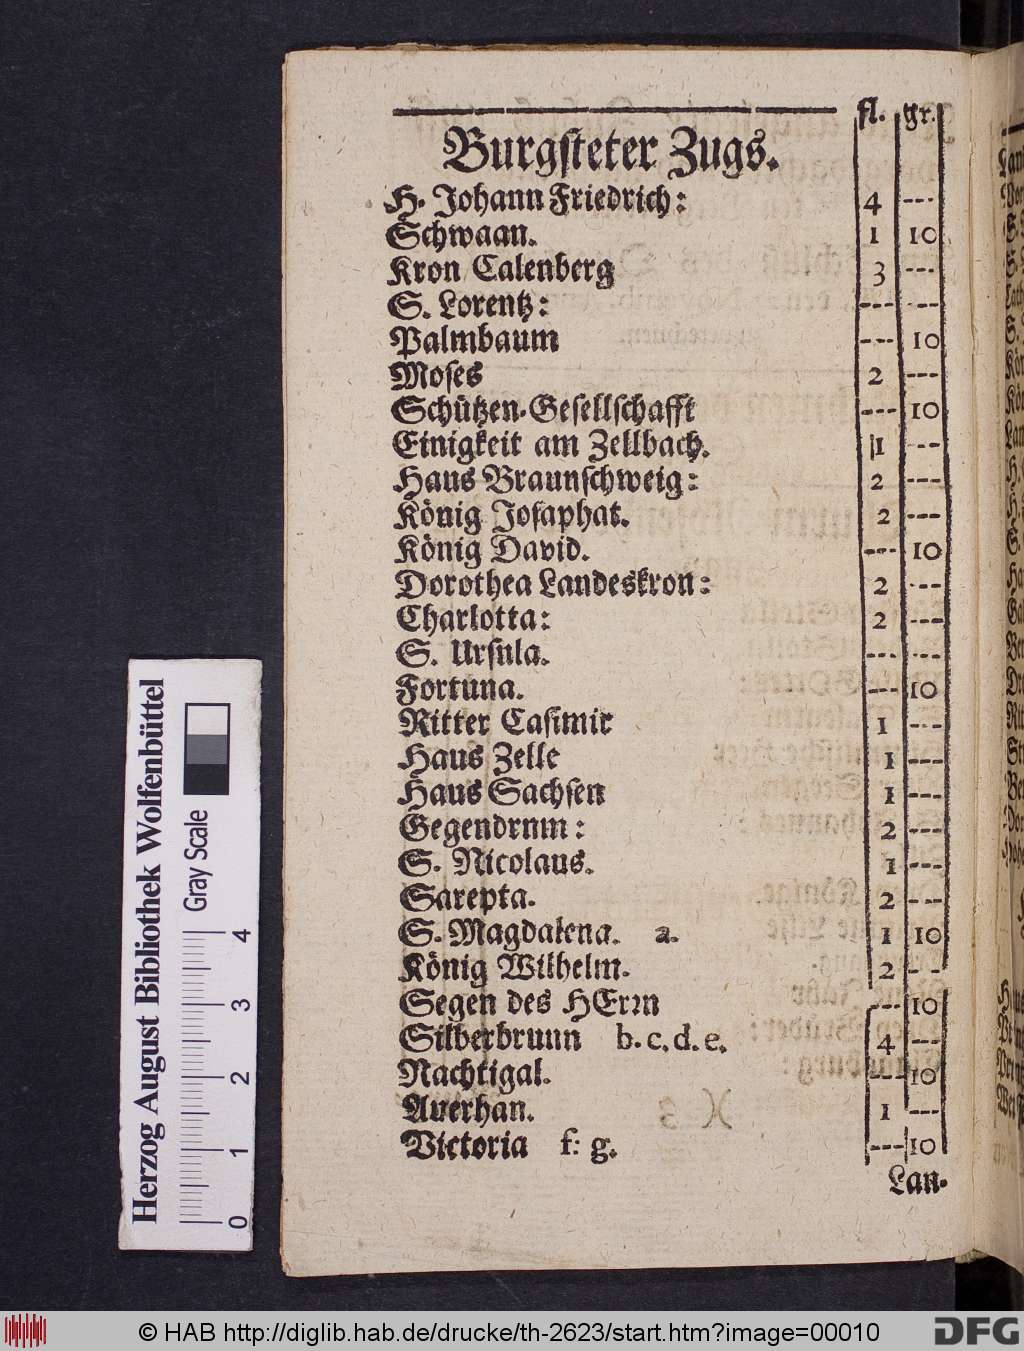 fl. gr.
Burgſteter Zugs.
H. Johann Friedrich: 4 ---
Schwaan. 1 10
Kron Calenberg 3 ---
S. Lorentz: --- ---
Palmbaum --- 10
Moſes 2 ---
Schützen-Geſellſchafft --- 10
Einigkeit am Zellbach. 1 ---
Haus Braunſchweig: 2 ---
König Joſaphat. 2 ---
König David. --- 10
Dorothea Landeskron: 2 ---
Charlotta: 2 ---
S. Urſnla. --- ---
Fortuna. --- 10
Ritter Caſimir 1 ---
Haus Zelle 1 ---
Haus Sachſen 1 ---
Gegendrnm: 2 ---
S. Nicolaus. 1 ---
Sarepta. 2 ---
S. Magdalena. a. 1 10
König Wilhelm. 2 ---
Segen des HErꝛn --- 10
Silberbrunn b. c. d. e. 4 ---
Nachtigal. --- 10
Auerhan. 1 ---
Victoria f: g. --- 10
Lan-
Herzog August Bibliothek Wolfenbüttel
Gray Scale
0 1 2 3 4
© HAB http://diglib.hab.de/drucke/th-2623/start.htm?image=00010
DFG